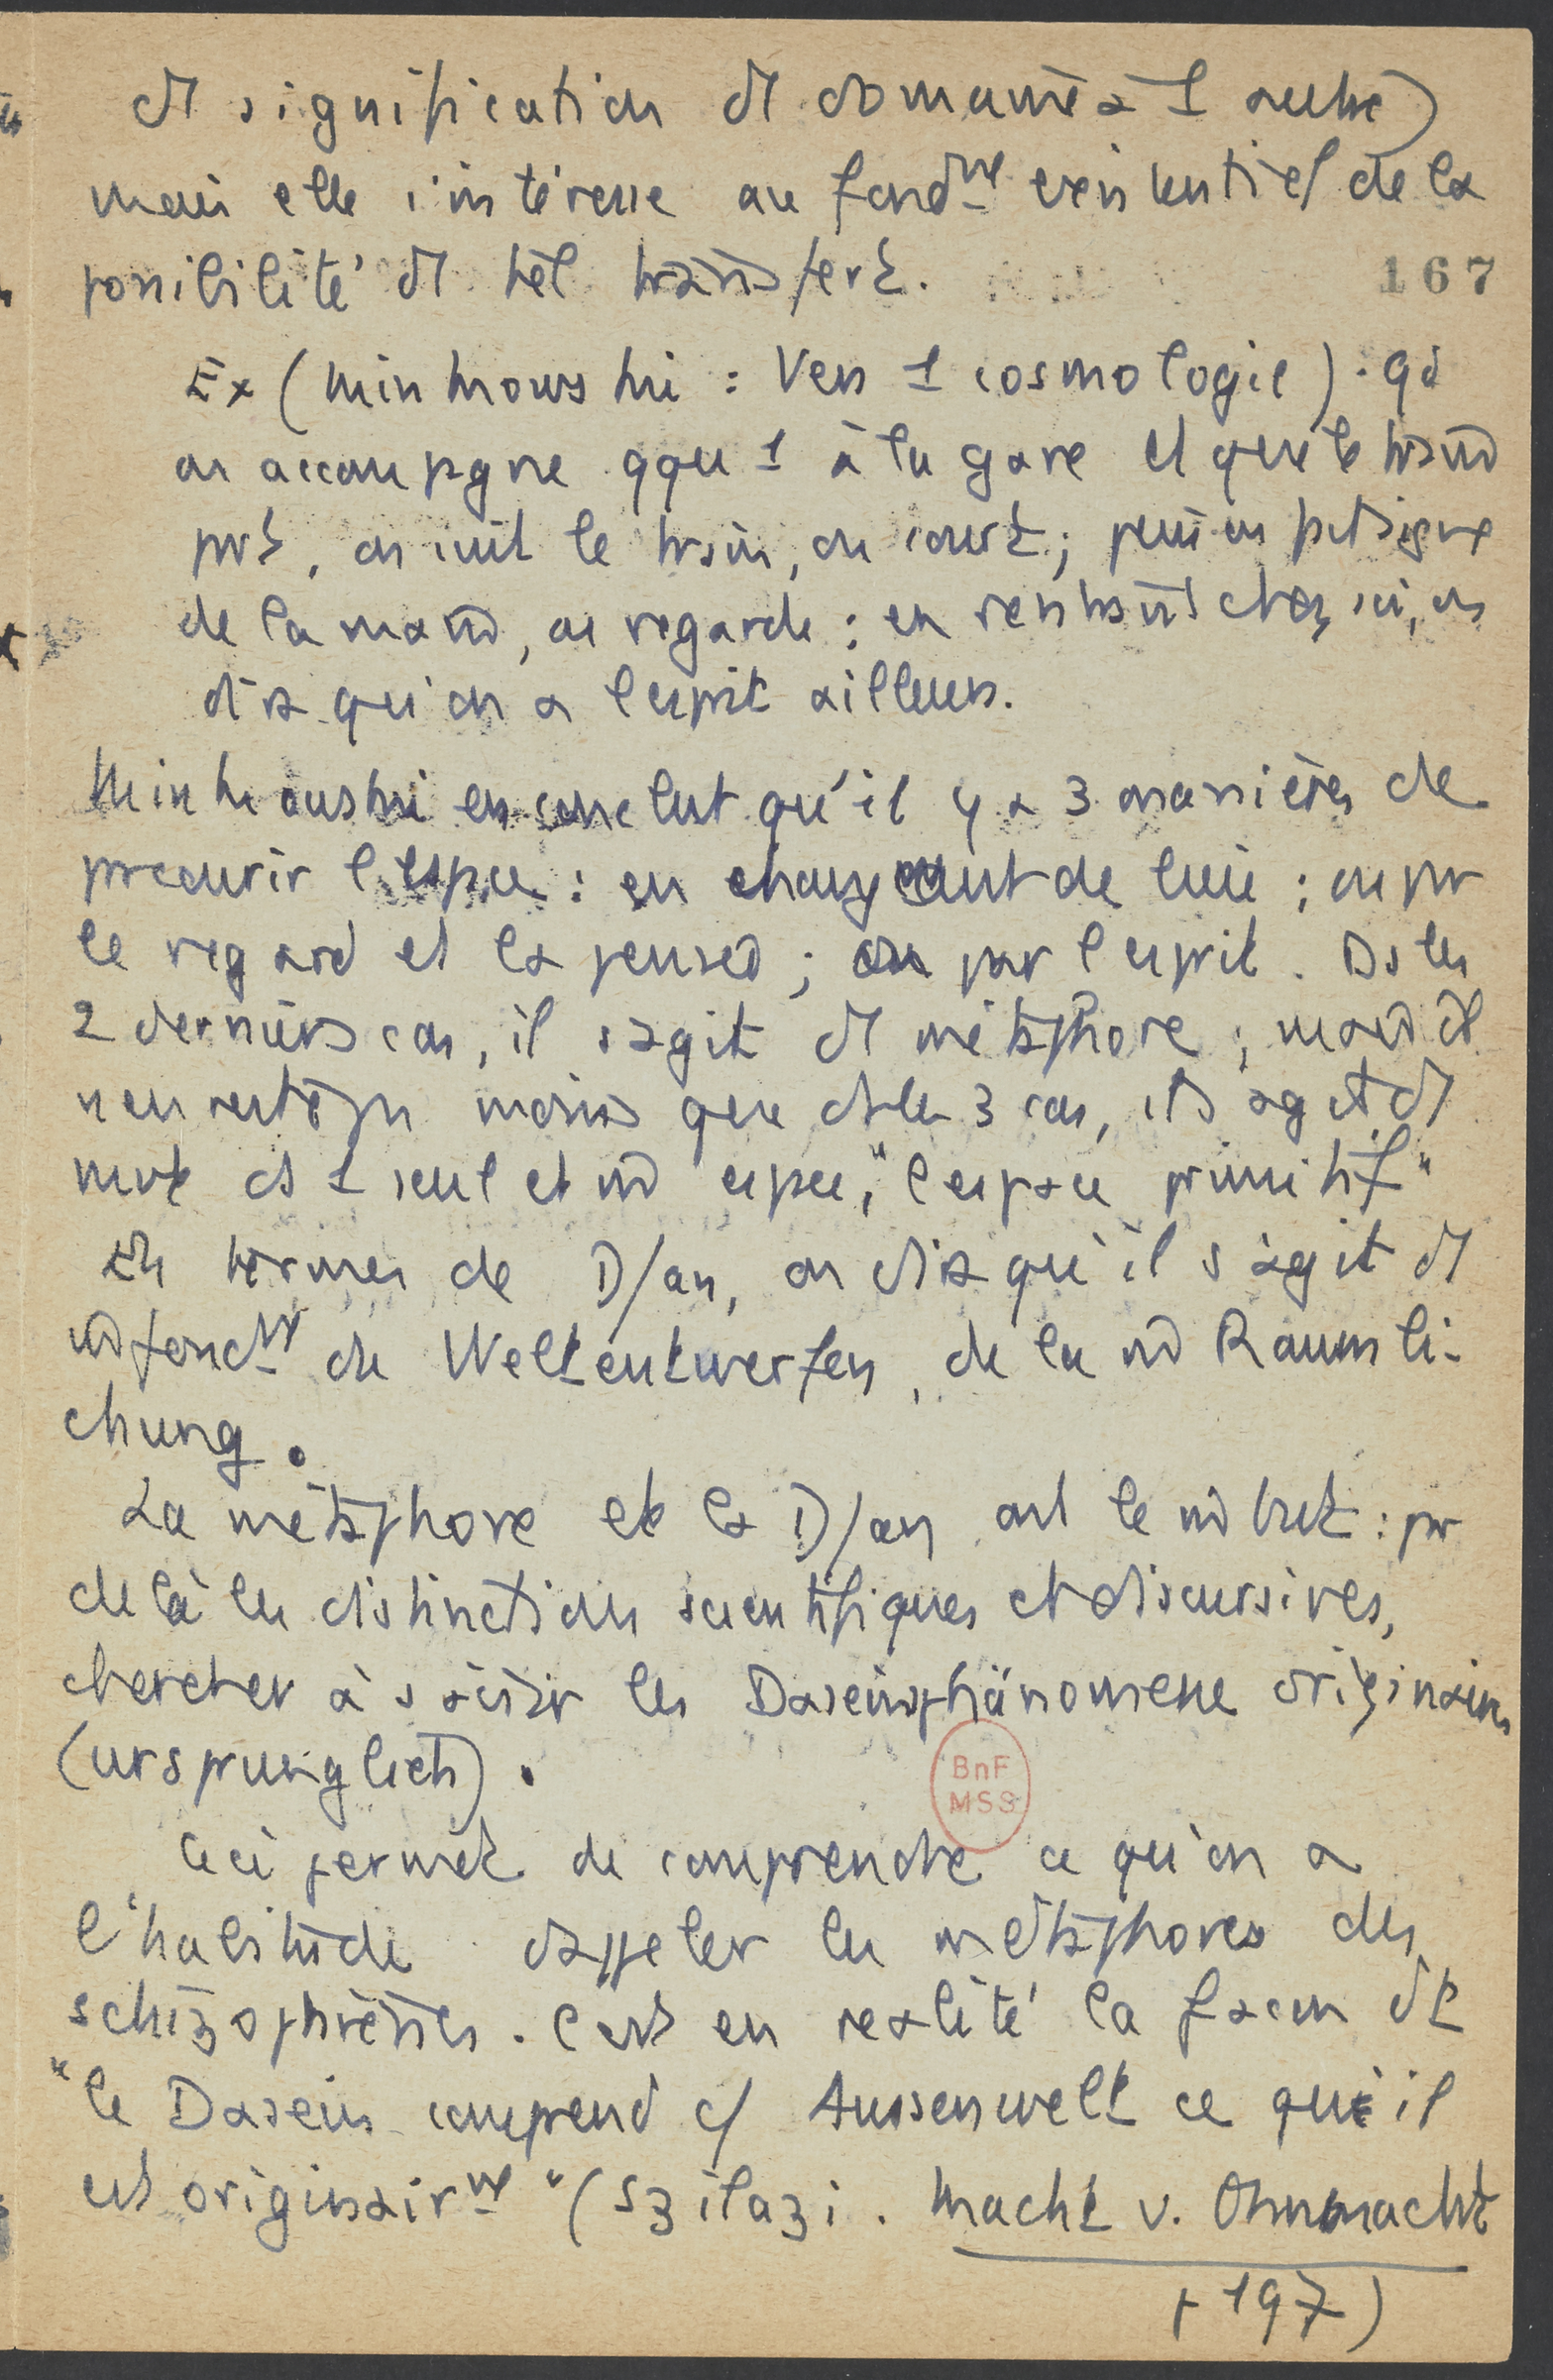 de signification de domaine à 1 autre)
mais elle s'intéresse au fondmt existentiel de la
possibilité de tel transfert.
167
Ex (Minkowski : Vers 1 cosmologie) : qd
on accompagne qqu 1 à la gare et que le train
part, on suit le train, on court ; puis on fait signe
de la main, on regarde ; en rentrant chez soi, on
dira qu'on a l'esprit ailleurs.
Minkowski en conclut qu'il y a 3 manières de
parcourir l'espace : en changeant de lieu ; ou par
le regard et la pensée ; ou par l'esprit. Ds les
2 derniers cas, il s'agit de métaphore ; mais il
n'en reste pas moins que ds les 3 cas, il s'agit de
mvt ds 1 seul et m̂ espace, "l'espace primitif"
En termes de D/an, on dira qu'il s'agit de
m̂ fondmt de Weltentwerfen, de la m̂ Raumli-
chung.
La métaphore et la D/an ont le m̂ but : par
delà les distinctions scientifiques et discursives,
chercher à saisir les Daseinsphänomene originaires
(ursprunglich).
BnF
MSS
Ceci permet de comprendre ce qu'on a
l'habitude d'appeler les métaphores des
schizophrènes. C'est en réalité la façon dt
"le Dasein comprend c/ Aussenwelt ce qu'il
est originairmt" (Szilazi. Macht v. Ohnmacht
p 197)